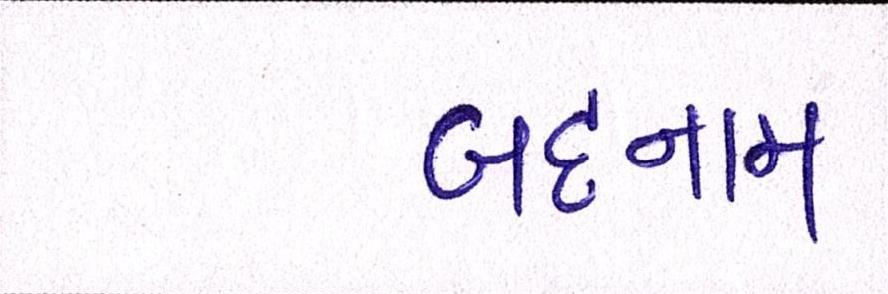 બદનામ